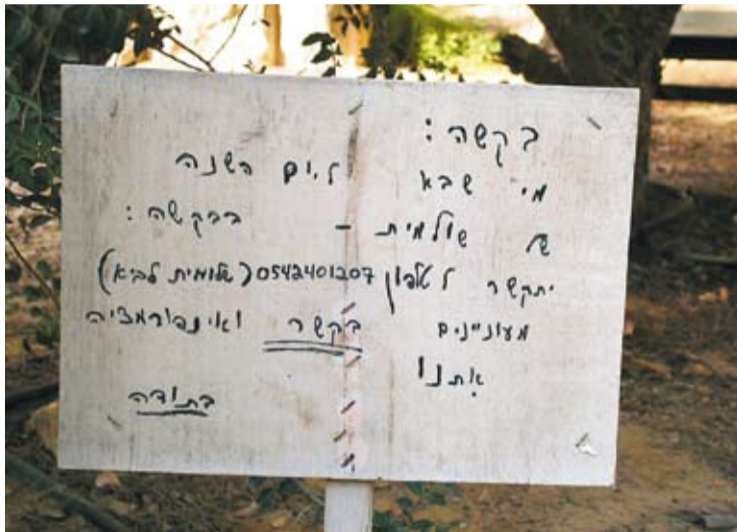 בקשה :
מי שבא ליום השנה
של שולמית - בבקשה :
יתקשר לטלפון 0542401207 (שלומית לביא)
מעוניינים בקשר ואינפורמציה
אתנו
בתודה